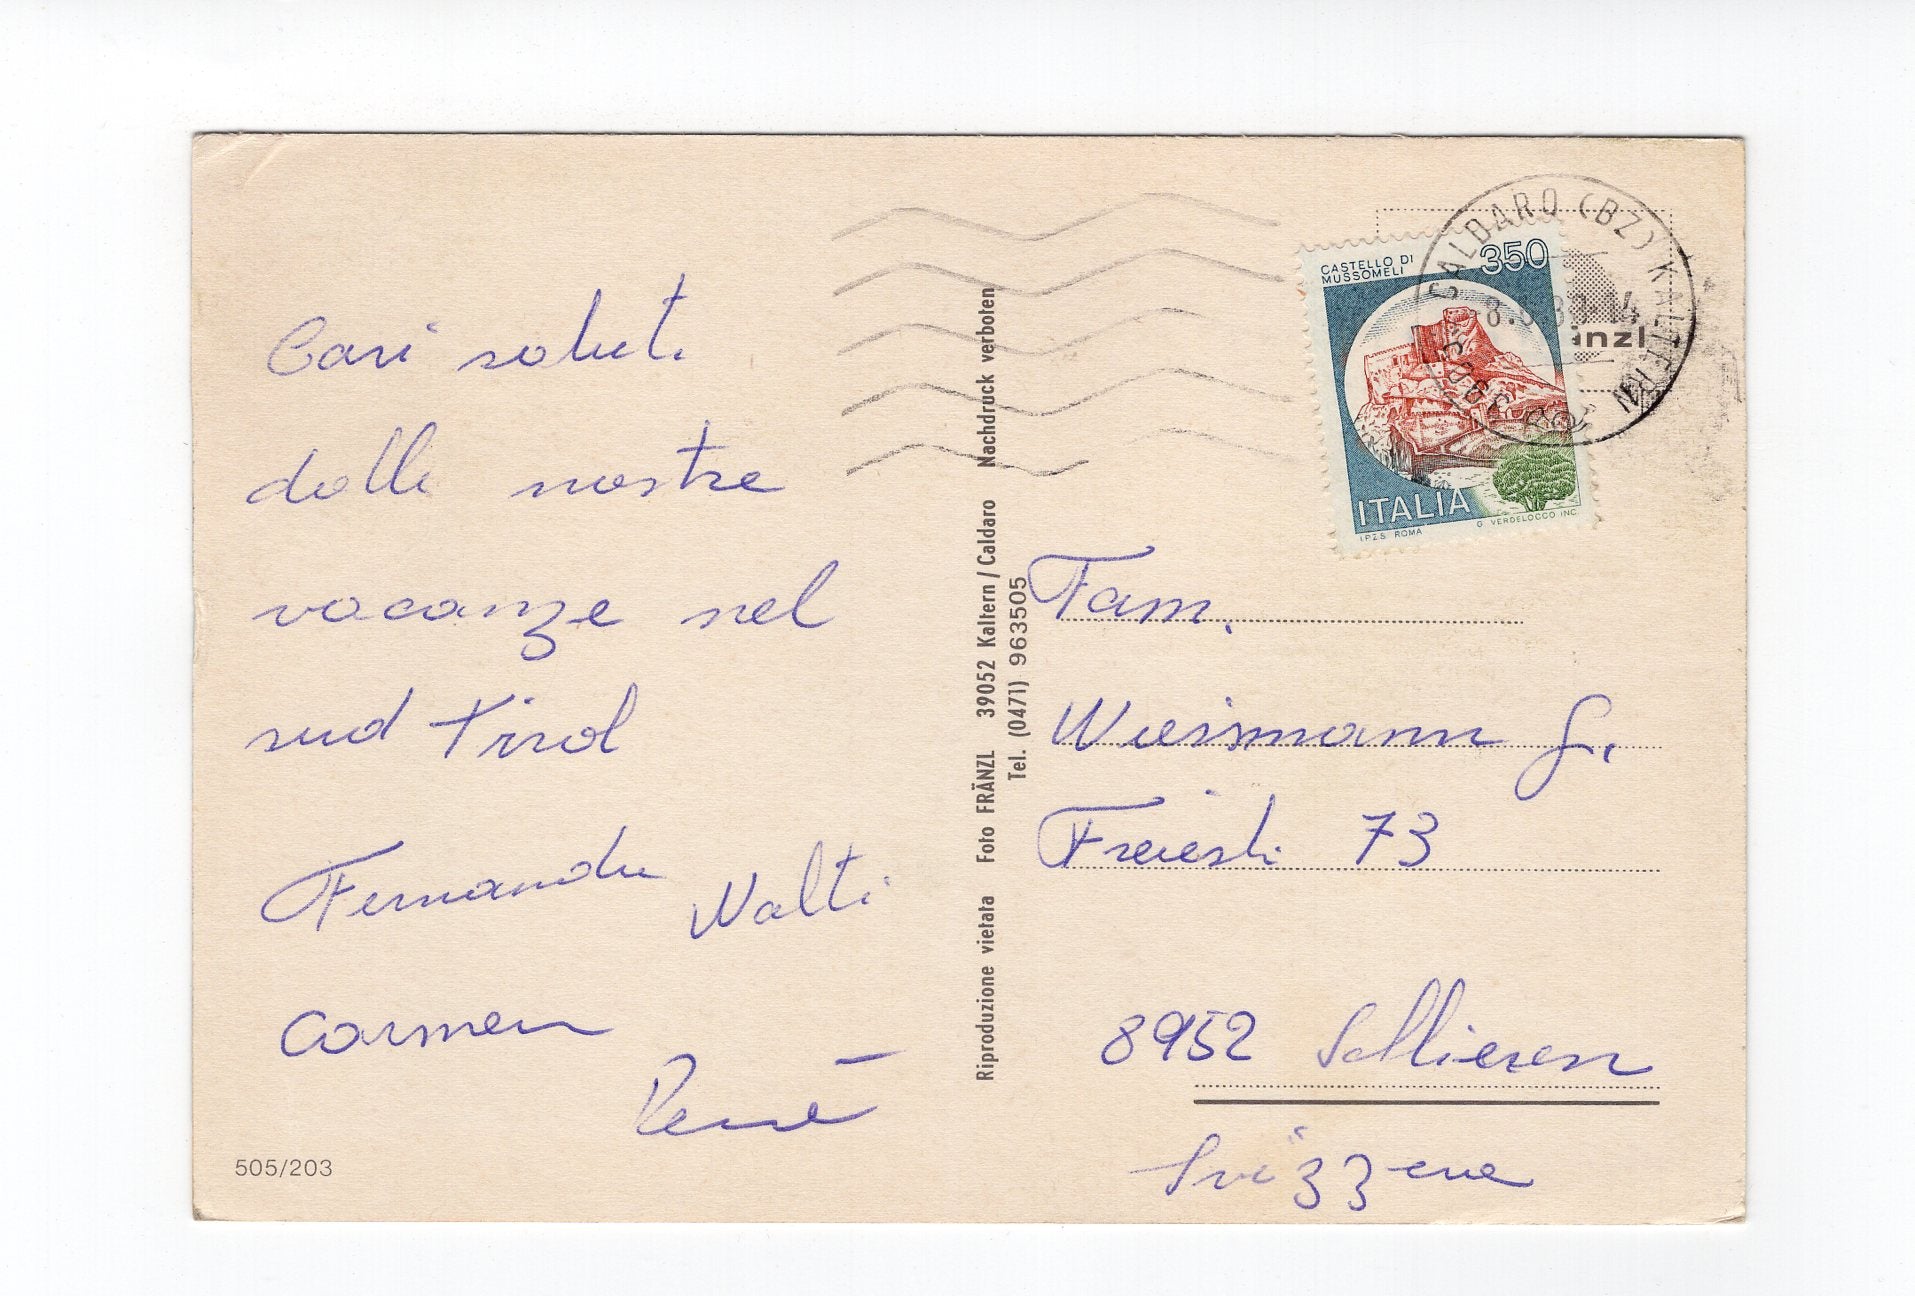 Cari saluti
dalle nostre
vacanze nel
sud Tirol
Fernanda Walti
Carmen
René
505/203
Riproduzione vietata Foto FRÄNZL 39052 Kaltern / Caldaro Nachdruck verboten
Tel. (0471) 963505
CASTELLO DI
MUSSOMELI
350
ITALIA
I.P.Z.S. ROMA
G. VERDELOCCO INC.
CALDARO (BZ) KALTERN
39052
änzl
Fam.
Weismann G.
73
8952 Schlieren
Svizzera